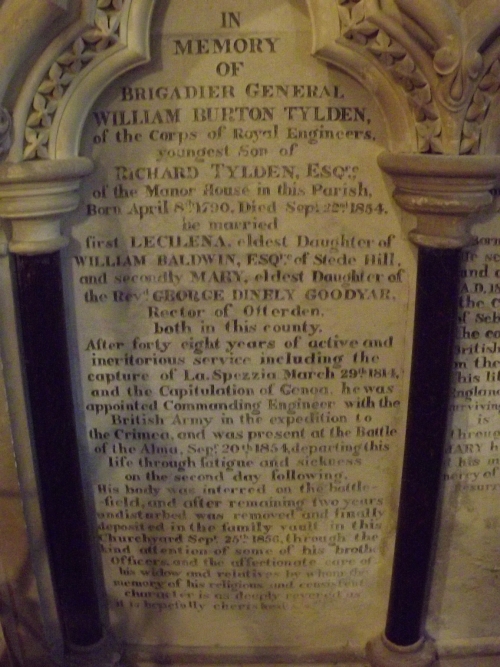 IN
MEMORY
OF
BRIGADIER GENERAL
WILLIAM BURTON TYLDEN,
of the Corps of Royal Engineers,
youngest Son of
RICHARD TYLDEN, ESQre,
of the Manor House in this Parish,
Born April 8th 1790, Died Sept 22nd 1854,
he married
first LECILENA, eldest Daughter of
WILLIAM BALDWIN, ESQre of Stede Hill,
and secondly MARY, eldest Daughter of
the Revd GEORGE DINELY GOODYAR,
Rector of Otterden,
both in this county.
After forty eight years of active and
meritorious service including the
capture of La Spezzia March 29th 1814,
and the Capitulation of Genoa, he was
appointed Commanding Engineer with the
British Army in the expedition to
the Crimea, and was present at the Battle
of the Alma, Sept 20th 1854, departing this
life through fatigue and sickness
on the second day following.
His body was interred on the battle-
field, and after remaining two years
undisturbed was removed and finally
deposited in the family vault in this
Churchyard Sept 25th 1856, through the
kind attention of some of his brother
Officers, and the affectionate care of
his widow and relatives by whom the
memory of his religious and consistent
character is as deeply revered as
it is hopefully cherished